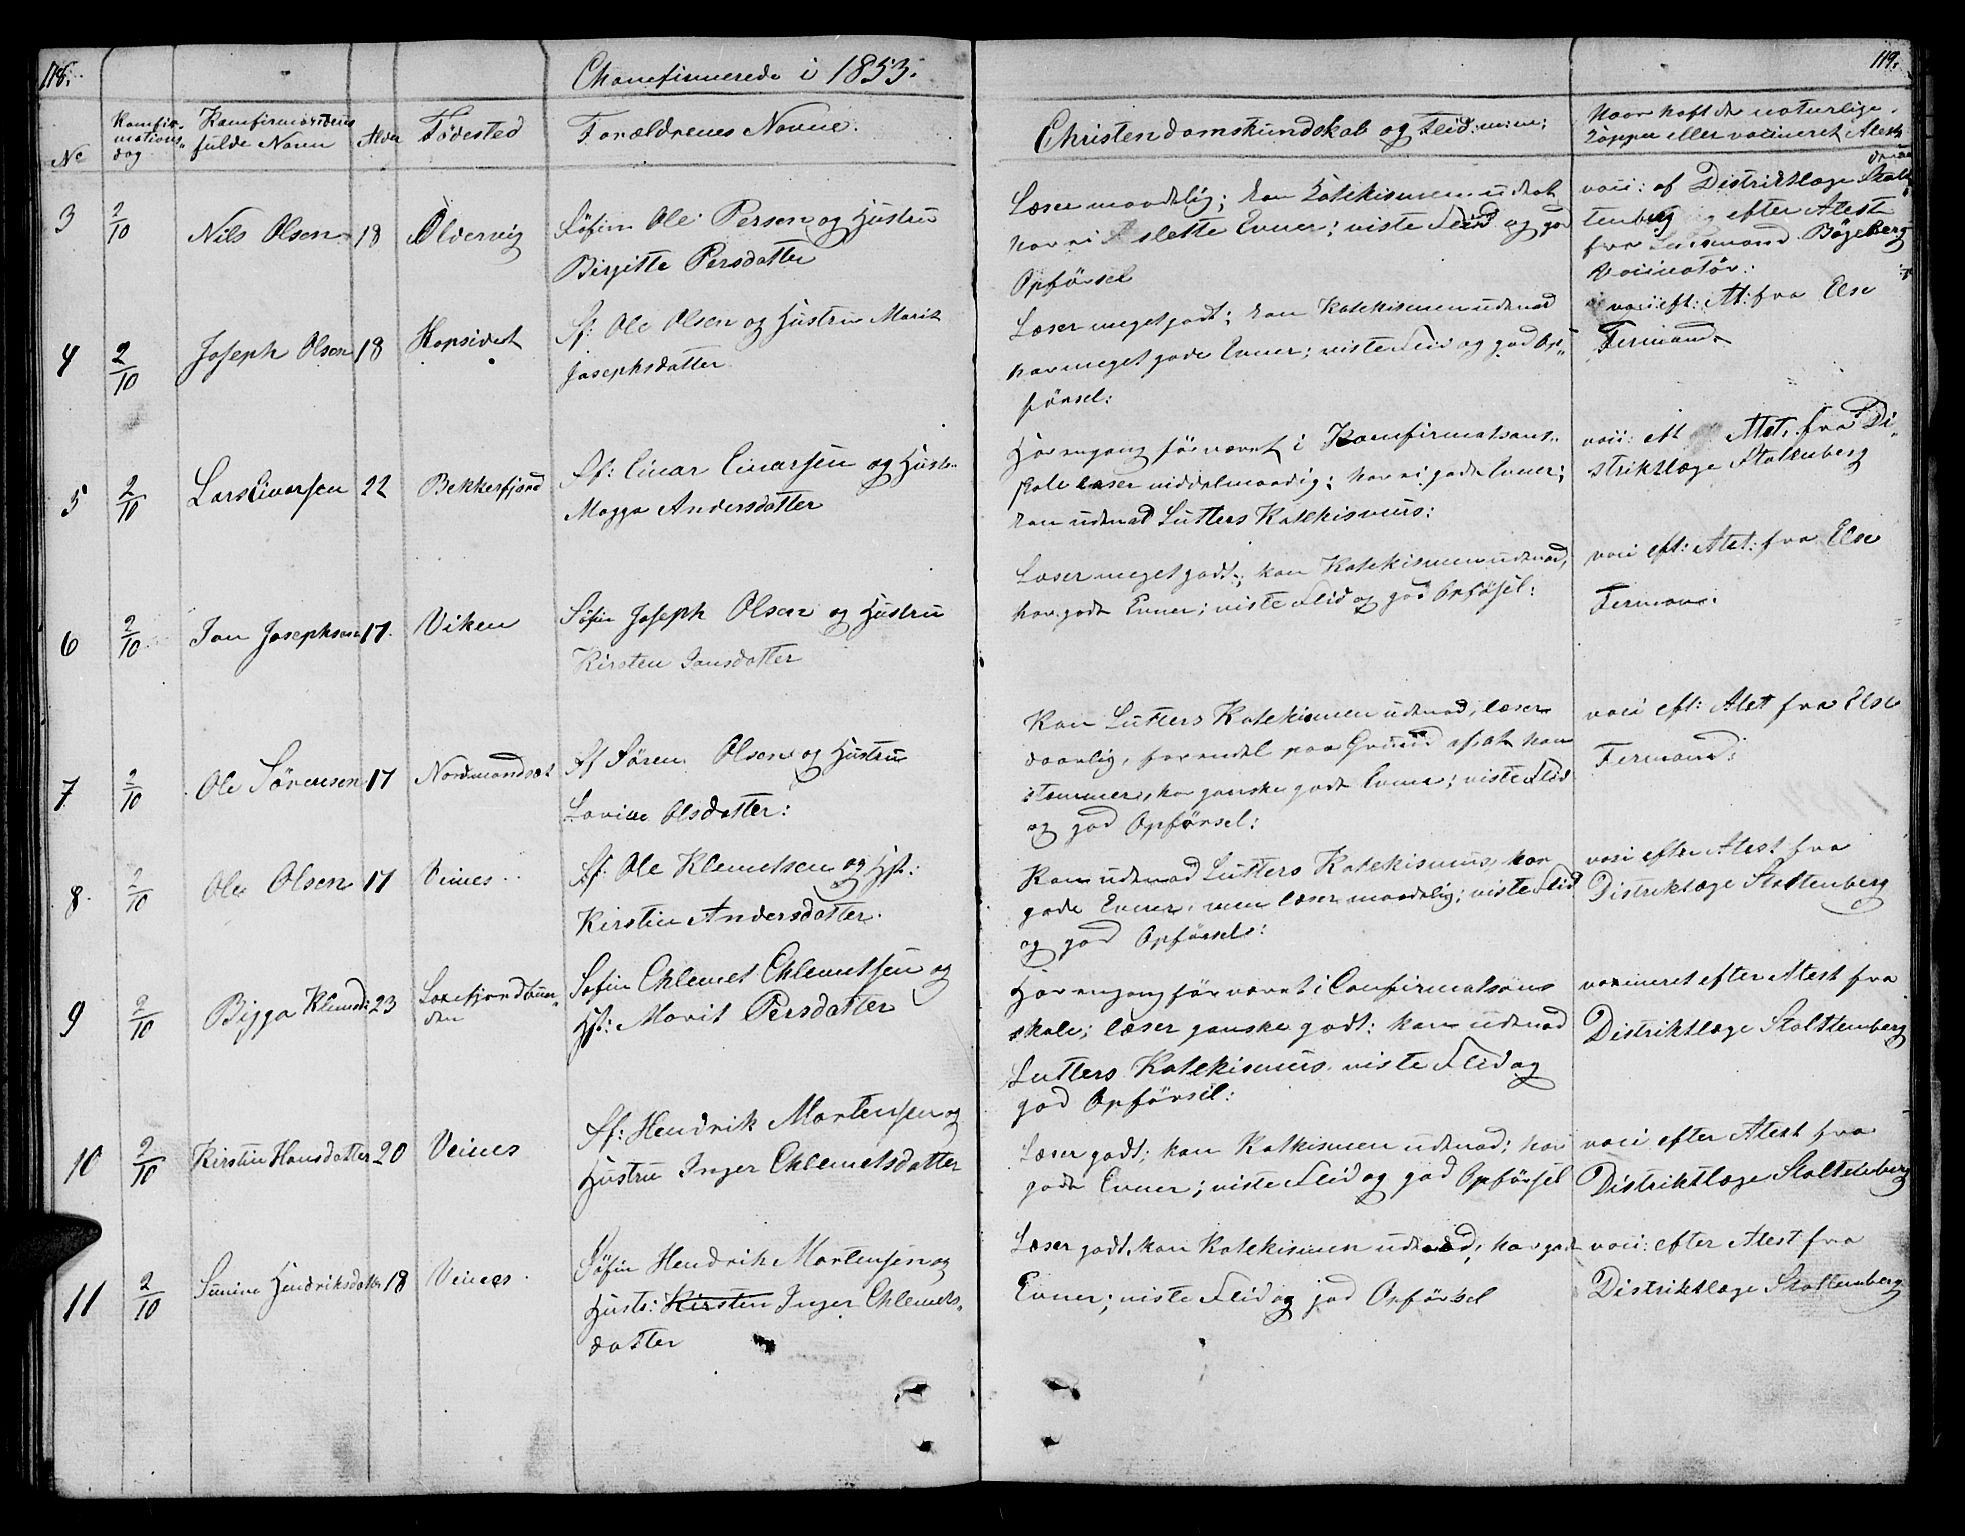 118.
Chonfirmerede i 1853.
119.
No
Konfir-
mations-
dag
Konfirmandens
fulde Navn
Alder
Fødested
Forældrenes Navne.
Christendomskundskab og Flid m: m:
Naar haft de naturlige
Kopper eller vacineret Atest
3
2/10
Nils Olsen
18
Oldervig
Søfin Ole Persen og Hustru
Birgitte Persdatter
Læser maadelig; kan Katekismen udenat
har ei slette Evner; viste Flid og god
Opførsel
vaci: af Distriktlæge Stolt
tenberg efter Atest
fra Lensmand Bøgeberg
Vaccinatør:
4
2/10
Joseph Olsen
18
Hopsidet
Sf: Ole Olsen og Hustru Marit
Josephsdatter
Læser meget godt; kan Katekismen udenad
har meget gode Evner; viste Flid og god Op-
førsel:
vaci eft: At: fra Else
Fermand
5
2/10
Lars Einarsen
22
Bekkerfjord
Sf: Einar Einarsen og Hustr.
Magga Andersdatter
Har engang før været i Konfirmatsons-
skole læser middelmaadig; har ei gode Evner;
kan udenad Lutters Katekismus:
vaci: eft Atet. fra Di-
striktlæge Stoltenberg
6
2/10
Jon Josephsen
17.
Viken
Søfin Joseph Olsen og Hustru
Kirsten Jonsdatter
Læser meget godt; kan Katekismen udenad,
har gode Evner; viste Flid og god Opføsel:
vaci eft: Atet: fra Else
Fermand:
7
2/10
Ole Sørensen
17
Nordmandset
Sf Søren Olsen og Hustru
Lovise Olsdatter:
Kan Lutters Katekismen udenad, læser
daarlig, for endel paa Grund af at han
stammer, har ganske gode Evner; viste Flid
og god Opførsel:
vaci eft: Atet fra Else
Fermand:
8.
2/10
Ole Olsen
17
Veines
Sf: Ole Klemetsen og Hst:
Kirstin Andersdatter.
Kan udenad Lutters Katekismus, har
gode Evner, men læser maadelig; viste Flid
og god Opførsel:
vaci efter Atest fra
Distriktlæge Stoltenberg
9
2/10
Bigga Klemetsd
23
Laxefjordbun-
den
Søfin Chlemet Chlemetsen og
Hst: Marit Persdatter
Har engang før været i Confirmatsons
skole; læser ganske godt; kan udenad
Lutters Katekismus viste Flid og
god Opførsel:
vacineret efter Atest fra
Distriktlæge Stolttenberg
10
2/10
Kirstin Hansdatter
20
Veines
Sf: Hendrik Mortensen og
Hustru Inger Chlemetsdatter
Læser godt; kan Katkismen udenad; har
gode Evner; viste Flid og god Opførsel
vaci efter Atest fra
Distriktlæge Stoltenberg
11
2/10
Sunive Hendriksdatter
18
Veines
Søfin Hendrik Mortensen og
Hustr: Kirsten Inger Chlemets-
datter
Læser godt, kan Katekismen udenad; har gode
Evner; viste Flid og god Opførsel
vaci: efter Atest fra
Distriktlæge Stoltenberg